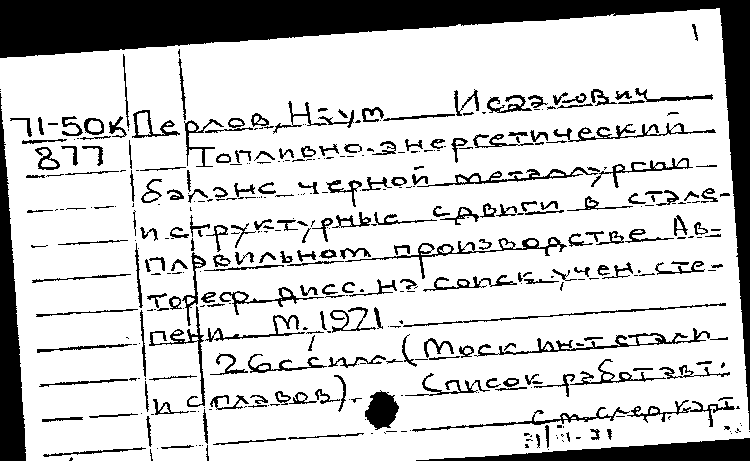 1
71-50к Перлов, Наум Исаакович
877 Топливно-энергетический
баланс черной металлургии
и структурные сдвиги в стале-
плавильном производстве. Ав-
тореф. дисс. на соиск. учен. сте-
пени. М., 1971.
26с с илл. (Моск. ин-т стали
и сплавов). Список работ авт:
с м. след. карт.